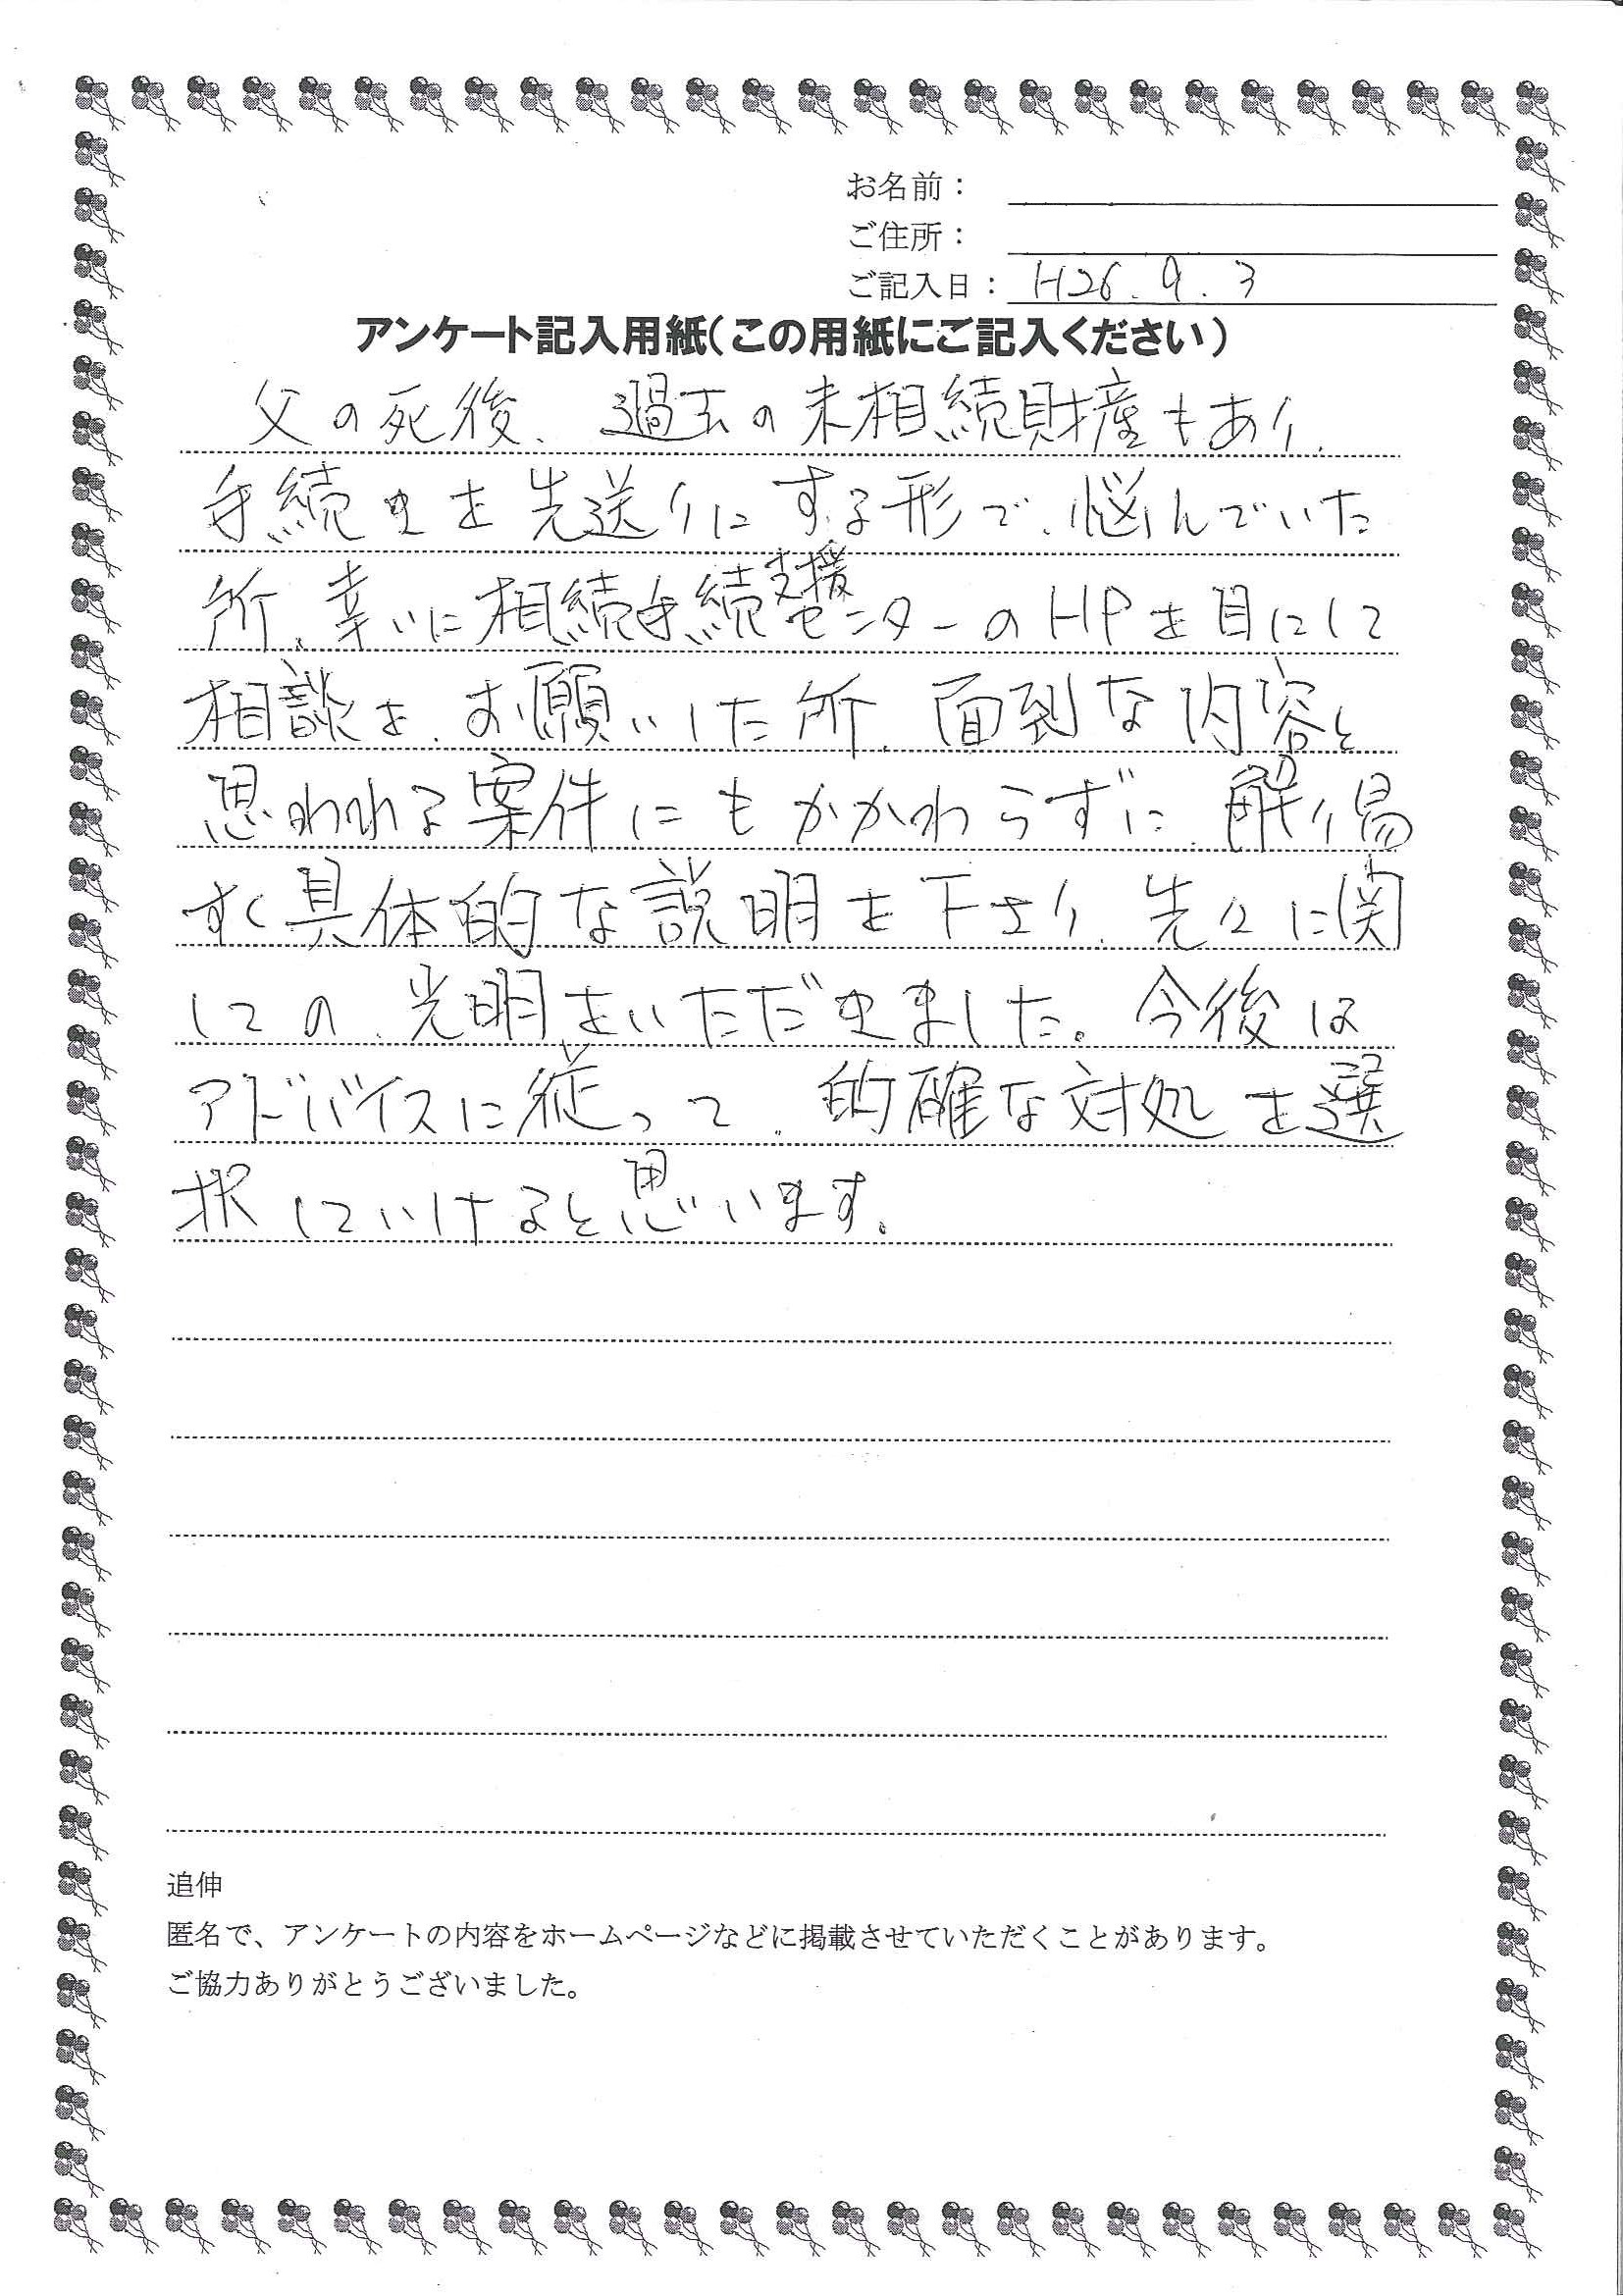 お名前：
ご住所：
ご記入日： H26.9.3
アンケート記入用紙(この用紙にご記入ください)
父の死後、過去の未相続財産もあり、
手続きを先送りにする形で、悩んでいた
所、幸いに相続手続支援センターのHPを目にして
相談を、お願いした所、面到な内容と
思われる案件にもかかわらずに、解り易
すく具体的な説明を下さり、先々に関
しての、光明をいただきました。今後は
アドバイスに従って、的確な対処を選
択していけると思います。
追伸
匿名で、アンケートの内容をホームページなどに掲載させていただくことがあります。
ご協力ありがとうございました。